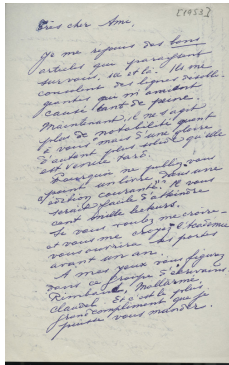 [1953]
Très cher Ami,
Je me réjouis des bons
articles que paraissent
sur vous, ça et là. Ils me
consolent des lignes désobli-
geantes qui m'avaient
causé tant de peine.
Maintenant, il ne s'agit
plus de notabilité quant
à vous, mais d'une gloire
d'autant plus solide qu'elle
est venue tard.
Pourquoi ne publiez-vous
point un livre dans une
édition courante. Il vous
serait facile d'atteindre
cent mille lecteurs.
Si vous voulez me croire
et vous me croyez, l'Académie
vous ouvrira ses portes
avant un an.
A mes yeux vous figurez
dans ce groupe d'écrivains
Rimbaud, Mallarmé
Claudel. Et c'est le plus
grand compliment que je
puisse vous mander.